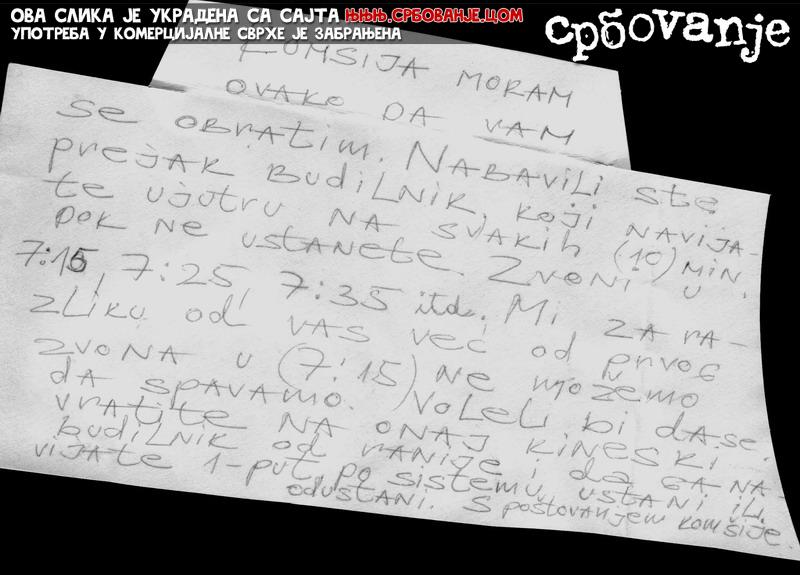 ОВА СЛИКА ЈЕ УКРАДЕНА СА САЈТА ЊЊЊ.СРБОВАЊЕ.ЦОМ
УПОТРЕБА У КОМЕРЦИЈАЛНЕ СВРХЕ ЈЕ ЗАБРАЊЕНА
србоvanje
KOMSIJA MORAM
OVAKO DA VAM
se OBRATIM. NABAVILI ste
prejAK BUDILNIK, koji NAVIJA-
te ujutru NA SVAKih (10) MIN.
DOK Ne USTANETE. ZVONI U
7:15, 7:25, 7:35 itd. Mi ZA RA-
ZLIKU od VAS već od prvog
ZVONA U (7:15) Ne možemo
DA SPAVAMO. VoLeLi bi da se
VRATITE NA ONAJ KINESKI
budiLNIK od ranije i da GA NA-
VIJATE 1-put po sistemu ustani ili
odustani. S poštovanjem komšije.